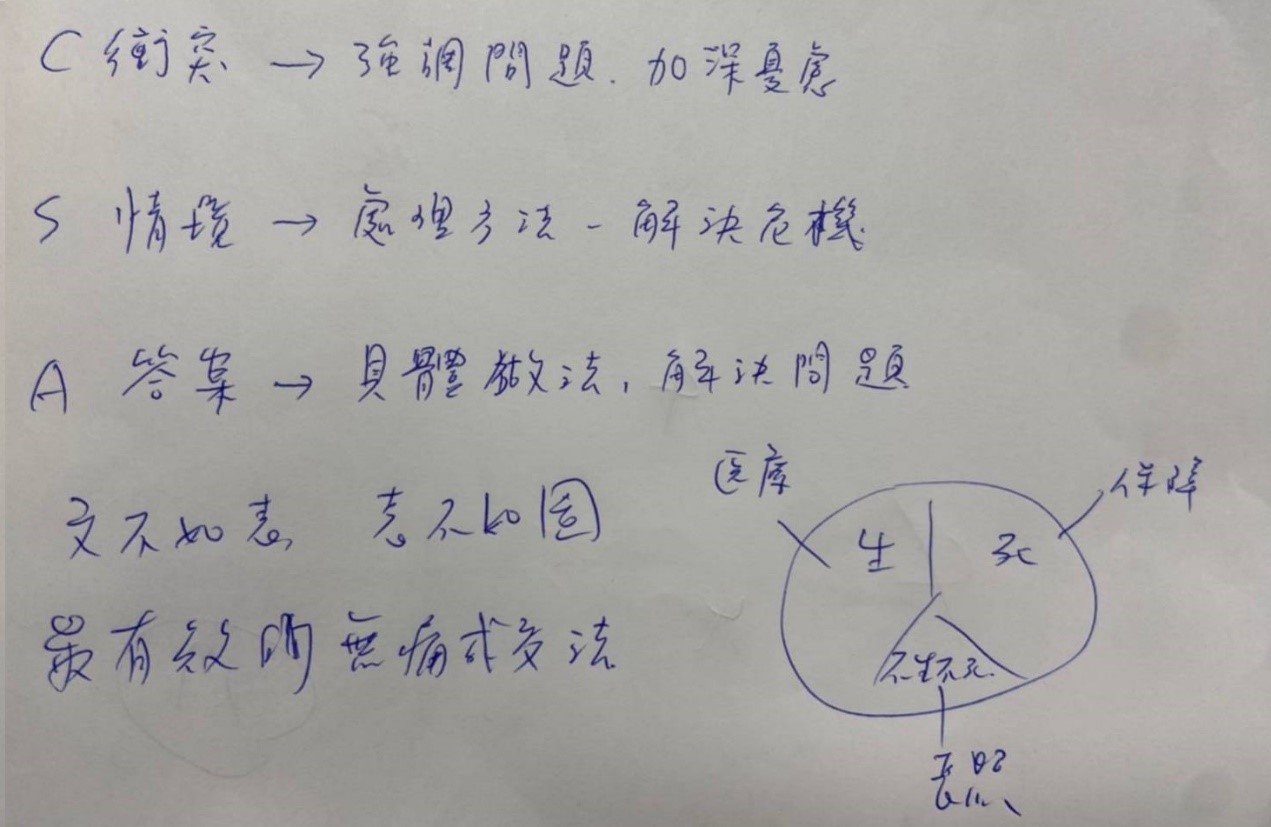 C 衝突 → 強調問題. 加深憂慮
S 情境 → 處理方法 - 解決危機
A 答案 → 具體做法, 解決問題
文不如表 表不如圖
最有效的無痛成交法
医療
保障
生
死
不生不死
長照